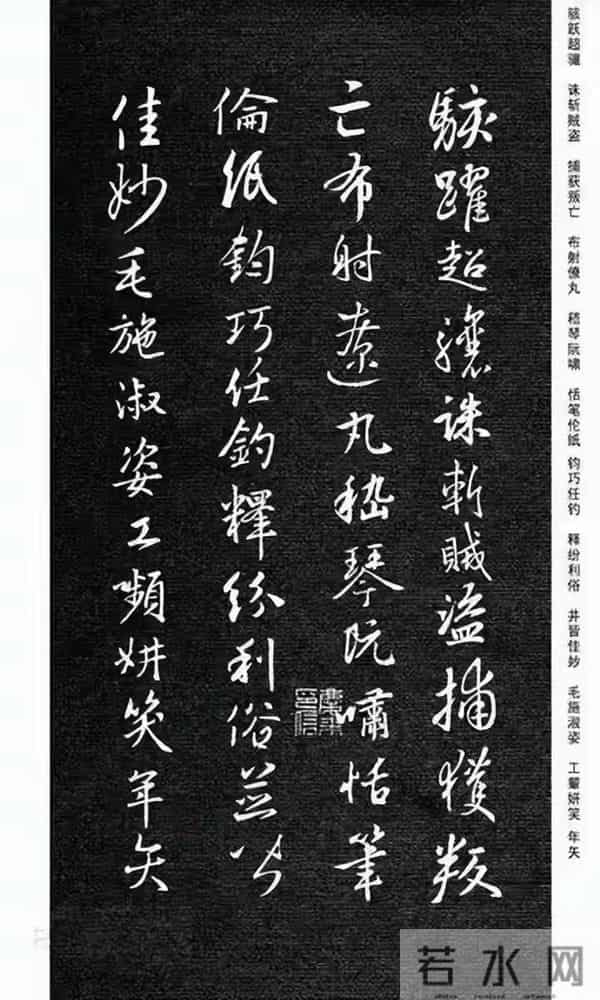 骇跃超骧 诛斩贼盗 捕获叛亡 布射僚丸 嵇琴阮啸 恬笔伦纸 钧巧任钓 释纷利俗 并皆佳妙 毛施淑姿 工颦妍笑 年矢
駭躍超驤誅斬賊盜捕獲叛
亡布射遼丸嵇琴阮嘯恬筆
倫紙鈞巧任釣釋紛利俗並皆
佳妙毛施淑姿工嚬妍笑年矢
若水网